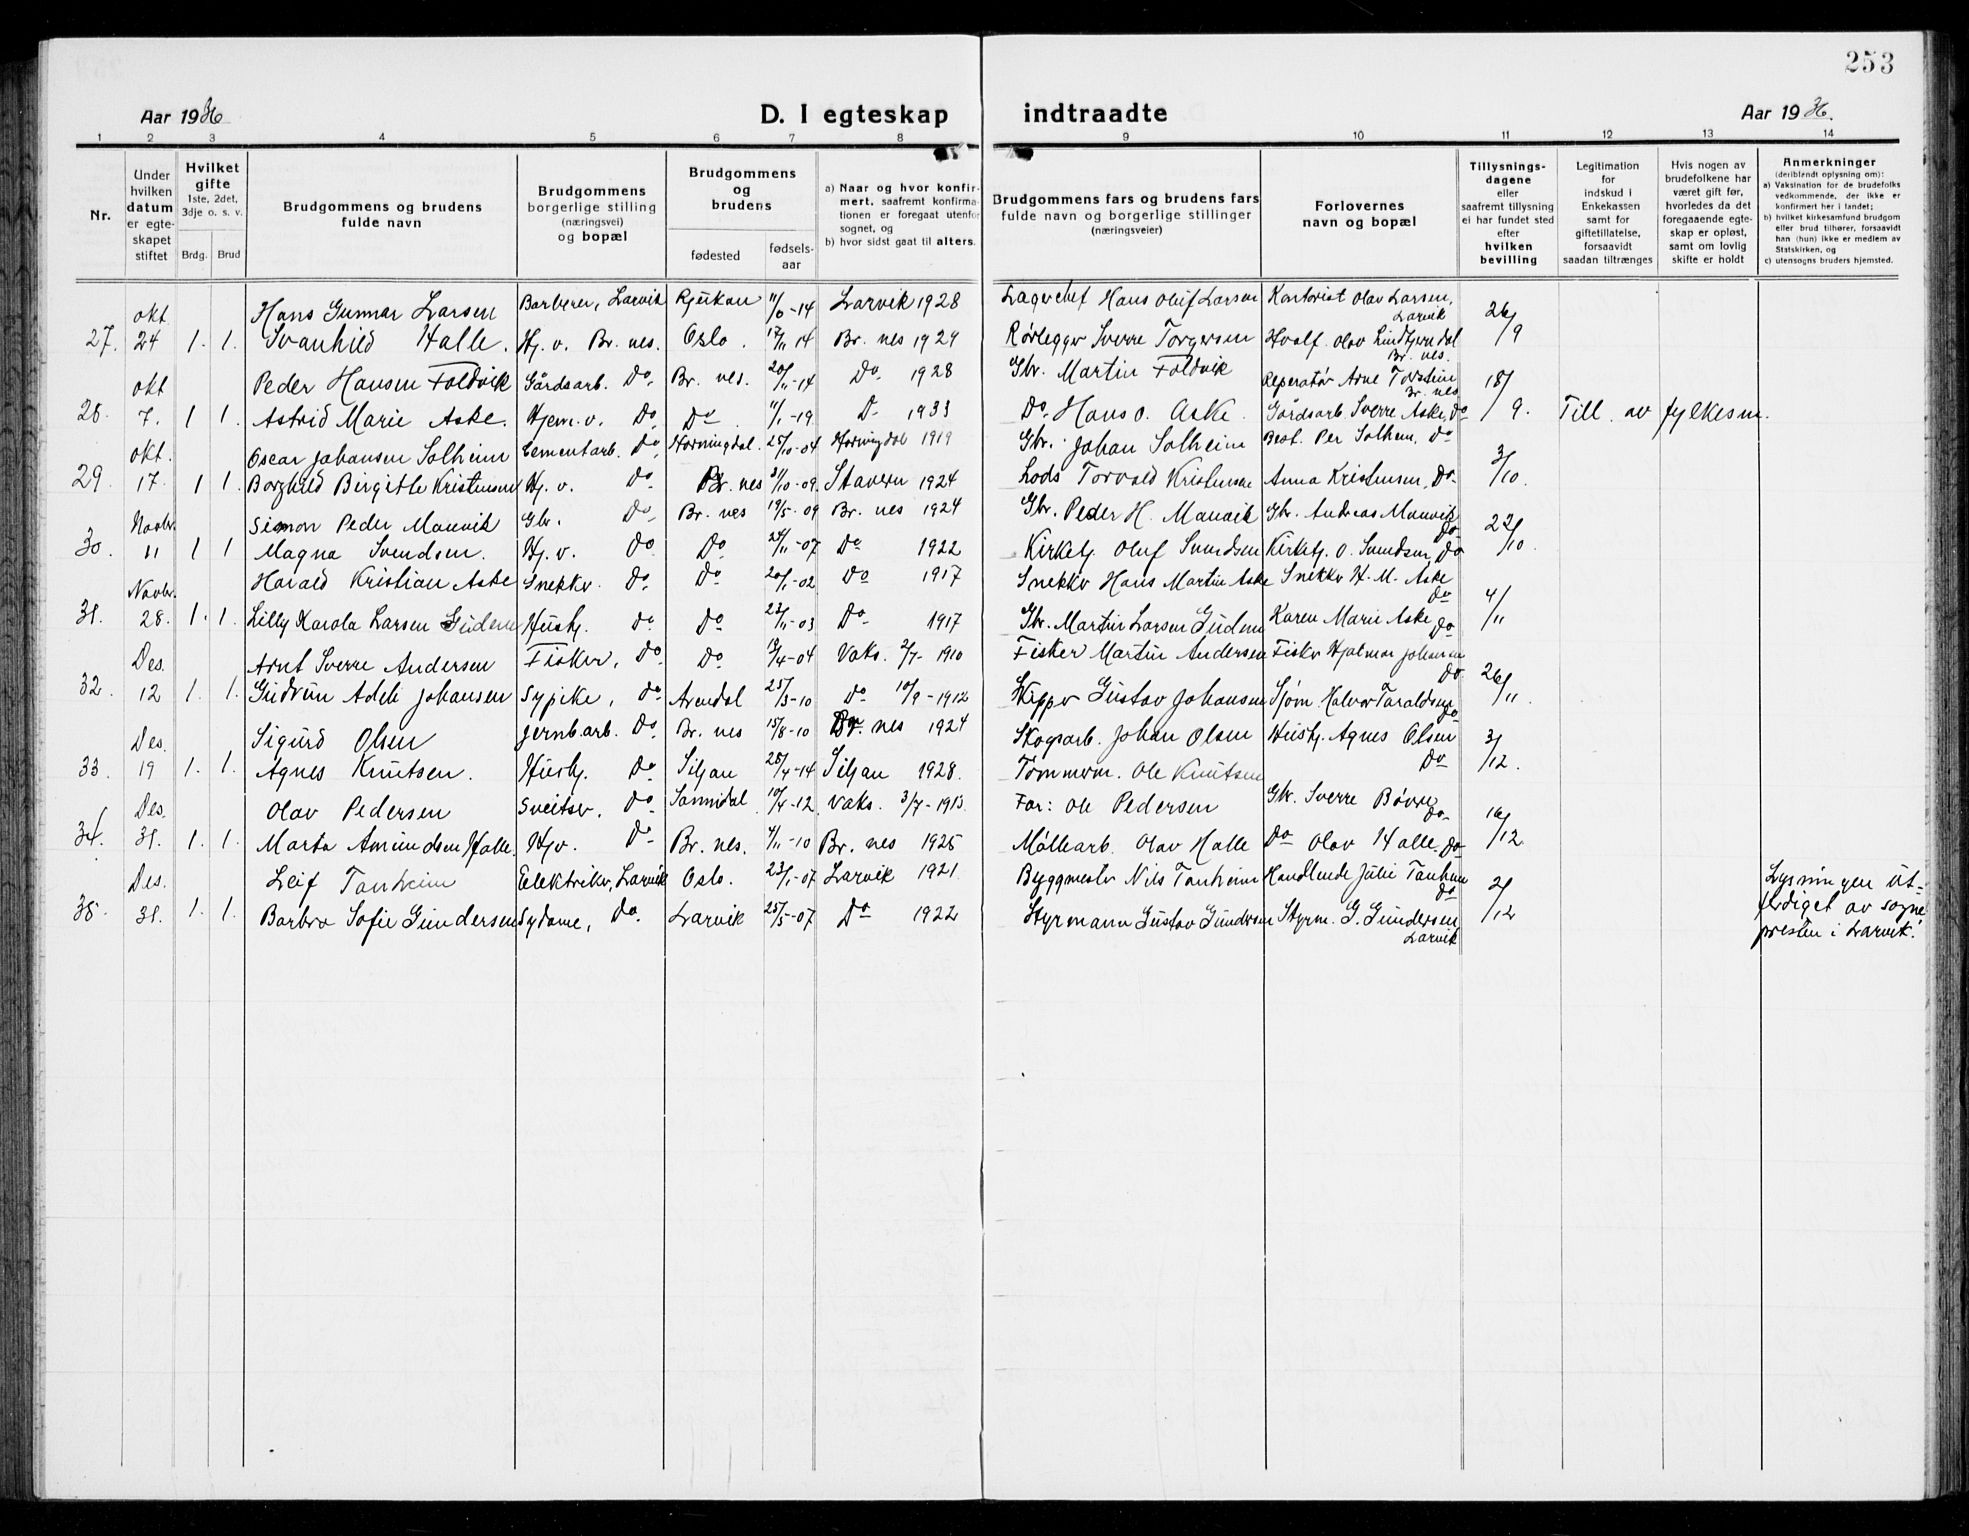 253
Aar 1936
D. I egteskap indtraadte
Aar 1936.
1 2 3 4 5 6 7 8 9 10 11 12 13 14
Nr.
Under
hvilken
datum
er egte-
skapet
stiftet
Hvilket
gifte
1ste, 2det,
3dje o. s. v.
Brdg. Brud
Brudgommens og brudens
fulde navn
Brudgommens
borgerlige stilling
(næringsvei)
og bopæl
Brudgommens
og
brudens
fødested
fødsels-
aar
a) Naar og hvor konfir-
mert, saafremt konfirma-
tionen er foregaat utenfor
sognet, og
b) hvor sidst gaat til alters.
Brudgommens fars og brudens fars
fulde navn og borgerlige stillinger
(næringsveier)
Forlovernes
navn og bopæl
Tillysnings-
dagene
eller
saafremt tillysning
ei har fundet sted
efter
hvilken
bevilling
Legitimation
for
indskud i
Enkekassen
samt for
giftetillatelse,
forsaavidt
saadan tiltrænges
Hvis nogen av
brudefolkene har
været gift før,
hvorledes da det
foregaaende egte-
skap er opløst,
samt om lovlig
skifte er holdt
Anmerkninger
(deriblendt oplysning om):
a) Vaksination for de brudefolks
vedkommende, der ikke er
konfirmert her i landet;
b) hvilket kirkesamfund brudgom
eller brud tilhører, forsaavidt
han (hun) ikke er medlem av
Statskirken, og
c) utensogns bruders hjemsted.
okt. Hans Gunnar Larsen Barberer, Larvik Rjukan -14 Larvik 1928 Lagerchef Hans Oluf Larsen Kontorist Olav Larsen, Larvik 26/9
27. 24 1. 1. Svanhild Halle. Hj. v. Br. nes. Oslo. 17/11 14 Br. nes 1929 Rørlegger Sverre Torgersen Hvalf. Olav Lindtjerndal Br. nes.
okt Peder Hansen Foldvik Gårdsarb. Do. Br. nes. 20/11-14 Do 1928 Gbr. Martin Foldvik Reperatør Arne Torstein Br. nes 18/9.
28. 7. 1 1. Astrid Marie Aske. Hjem. v. Do Do 11/1-19. D- 1933 Do. Hans O. Aske. Gårdsarb. Sverre Aske, Do Till. av fylkesm.
okt. Oscar Johansen Solheim Cementarb. Do, Horningdal. 25/10-04 Horningdal 1919 Gbr. Johan Solheim Best. Per Solheim, Do 3/10.
29 17. 1 1. Borghild Birgitte Kristensen Hj. v. Do Br. nes 31/10-09. Stavern 1924 Lods Torvald Kristensen Anna Kristensen, Do
Novbr. Simon Peder Manvik Gbr. Do, Br. nes 19/5-09 Br. nes 1924 Gbr. Peder H. Manvik Gbr. Andreas Manvik Do 22/10.
30. 11 1 1 Magna Svendsen. Hj. v. Do Do 24/11-07 Do 1922 Kirketj. Oluf Svendsen Kirketj. O. Svendsen, Do
Novbr. Harald Kristian Aske Snekker. Do. Do 20/1-02 Do 1917 Snekker Hans Martin Aske Snekker H. M. Aske Do 4/11
31. 28. 1. 1. Lilly Karola Larsen Gudem Hustj. Do Do 23/11-03 Do- 1917 Gbr. Martin Larsen Gudem Karen Marie Aske Do
Des. Arnt Sverre Andersen Fisker, Do. Do 19/4-04 Vaks. 2/7-1910 Fisker Martin Andersen Fisker Hjalmar Johansen Do 26/11
32. 12 1. 1. Gudrun Adele Johansen Sypike, Do Arendal 25/3-10 Do 10/9-1912 Skipper Gustav Johansen Sjøm. Halvor Taraldsen Do
Des. Sigurd Olsen Jernb.arb. Do Br. nes 15/8-10 Br. nes 1924 Skogsarb. Johan Olsen Hustj. Agnes Olsen Do 3/12.
33. 19 1. 1. Agnes Knutsen. Hustj. Do Siljan 28/4-14 Siljan 1928. Tømmerm. Ole Knutsen
Des. Olav Pedersen Sveitser, Do Sannidal 10/4-12 Vaks. 3/7-1913 Far: Ole Pedersen Gbr. Sverre Bøvre Do 16/12
34. 31. 1. 1. Marta Amundsen Halle. Hjv. Do Br. nes. 4/11-10 Br. nes 1925 Møllearb. Olav Halle Do Olav Halle. Do
Des. Leif Tanheim Elektriker, Larvik Oslo. 23/1-07 Larvik 1921. Byggmester Nils Tanheim Handlende Julie Tanheim Do 2/12 Lysningen ut-
35. 31. 1. 1. Barbro Sofie Gundersen Sydame, Do. Larvik 25/5-07 Do 1922 Styrmann Gustav Gundersen Styrm. G. Gundersen Larvik ferdiget av sogne-
presten i Larvik.